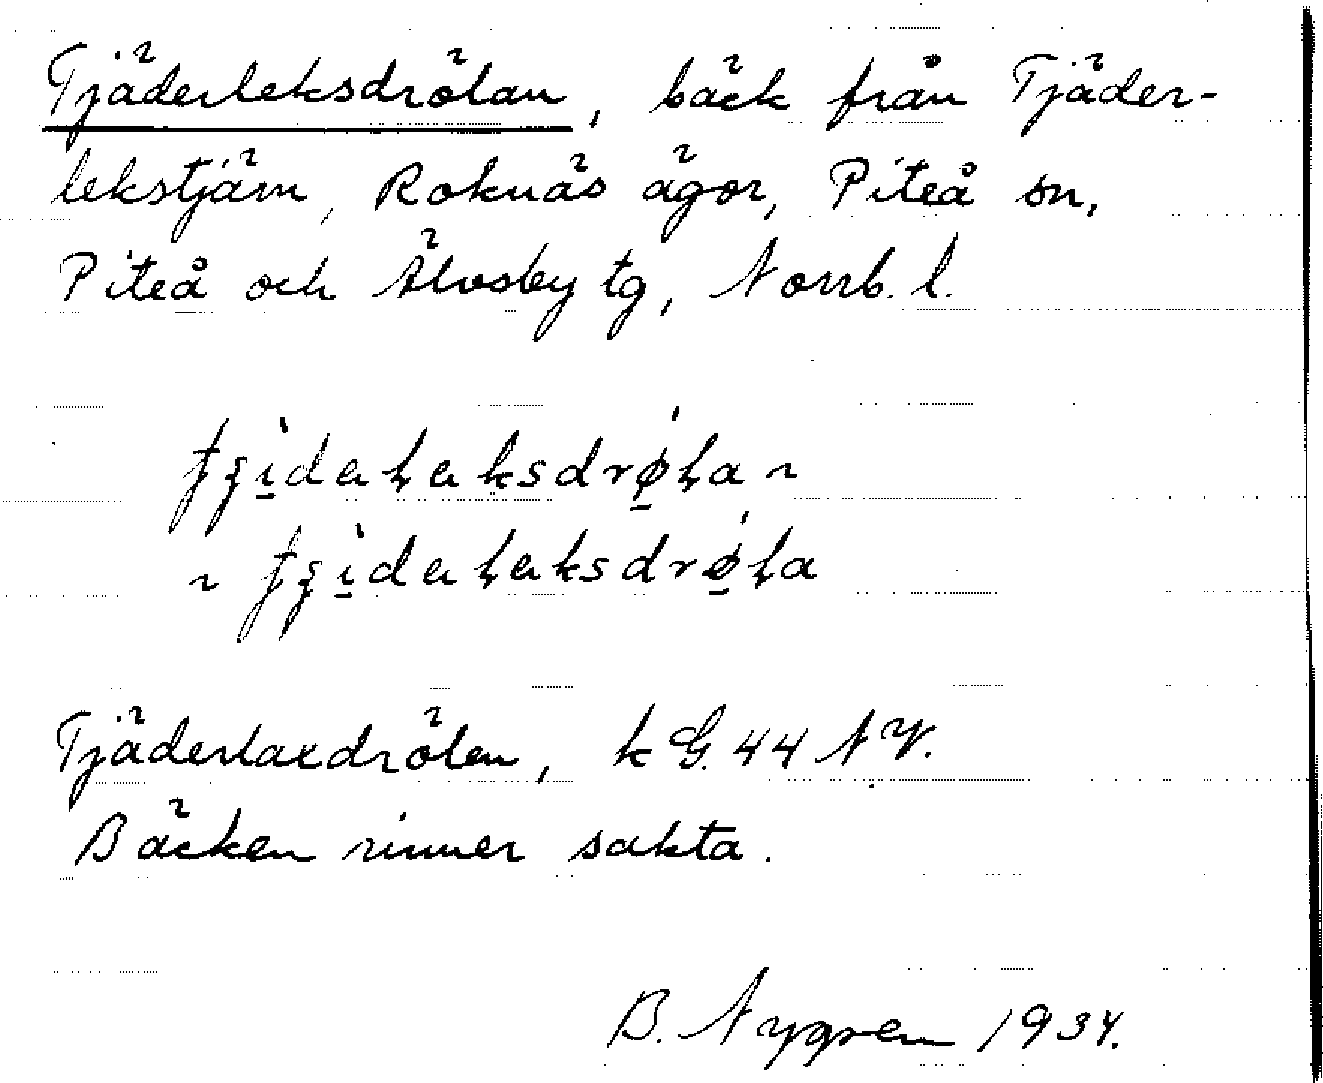 Tjäderleksdrölan, bäck från Tjäder-
lekstjärn, Roknäs ägor, Piteå sn,
Piteå och Älvsby tg, Norrb. l.
Tjäderlaxdrölen, k G. 44 NV.
Bäcken rinner sakta.
B. Nygren 1934.